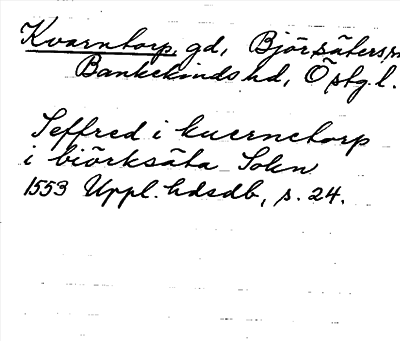 Kvarntorp, gd, Björsäters sn
Bankekinds hd, Östg.l.
Seffred i kuernetorp
i biörksäta Sokn
1553 Uppl. hdsdb, s. 24.